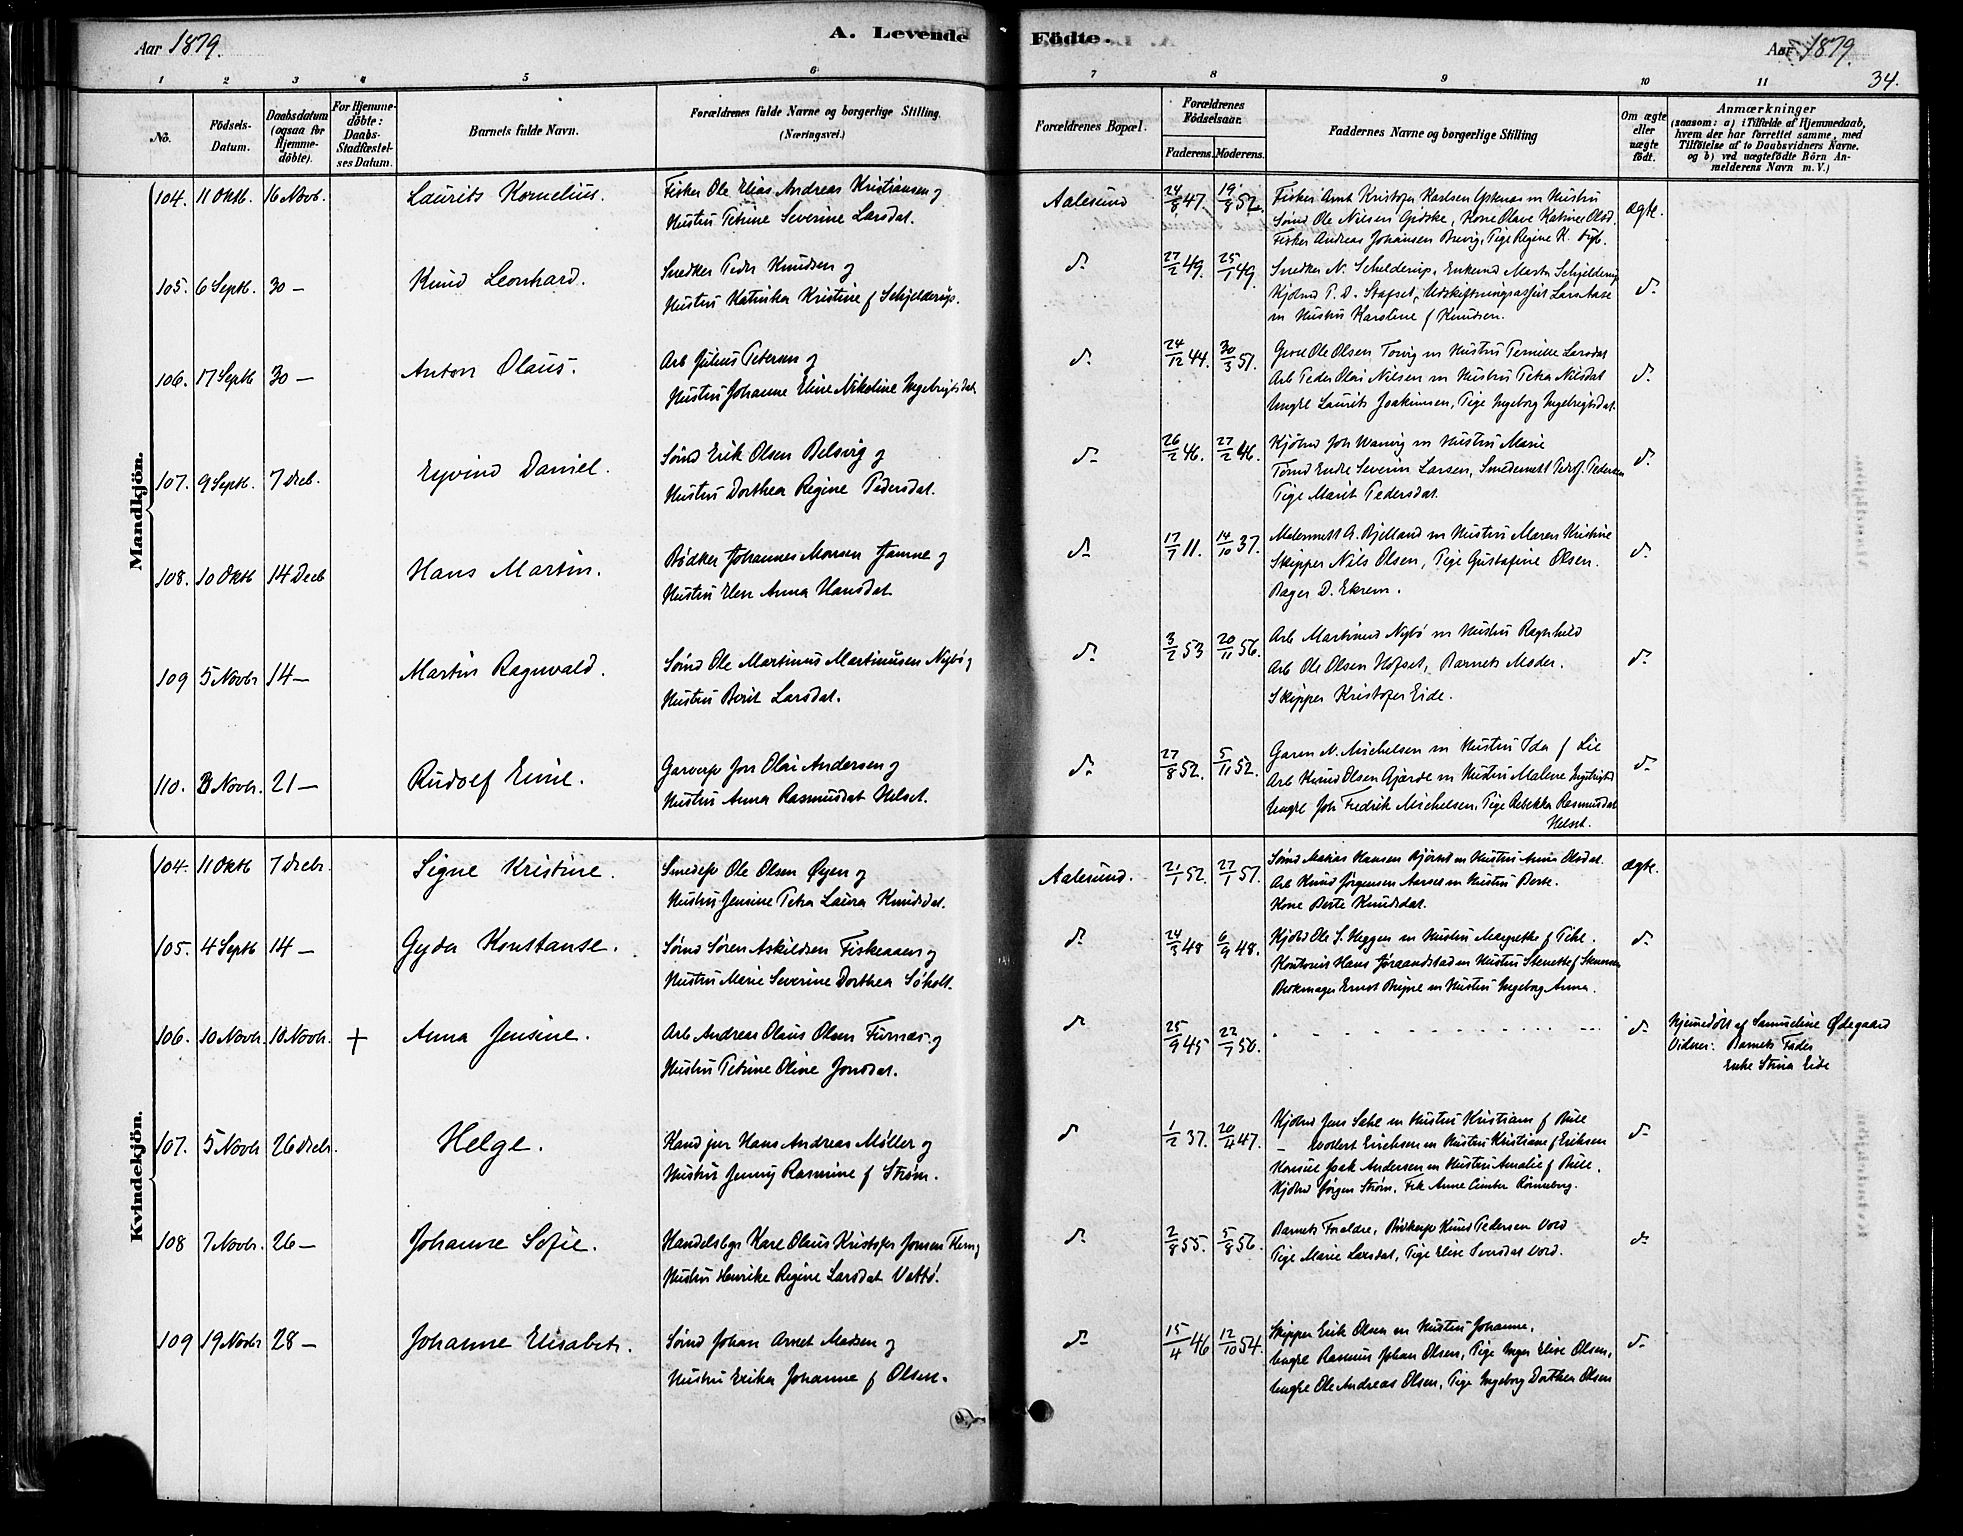 Aar 1879.
A. Levende Födte.
Aar 1879.
34.
1 2 3 4 5 6 7 8 9 10 11
No.
Födsels-Datum.
Daabsdatum (ogsaa for Hjemme-döbte).
For Hjemme-döbte: Daabs-Stadfæstel-ses Datum.
Barnets fulde Navn.
Forældrenes fulde Navne og borgerlige Stilling.
(Næringsvei.)
Forældrenes Bopæl.
Forældrenes Födselsaar.
Faderens. Moderens.
Faddernes Navne og borgerlige Stilling
Om ægte eller uægte födt.
Anmærkninger
(saasom: a) i Tilfælde af Hjemmedaab,
hvem der har forrettet samme, med
Tilföielse af to Daabsvidners Navne.
og b) ved uægtefödte Börn An-
melderens Navn m. V.)
Mandkjön.
104. 11 Oktb. 16 Novb. Laurits Kornelius. Fisker Ole Elias Andreas Kristiansen og
Hustru Petrine Severine Larsdat.
Aalesund 24/8 47. 19/8 52. Fisker Arnt Kristofer Karlsen m Hustru
Sømd Ole Nilsen Gidske, Kone Olave Katrine Olsd.
Fisker Andreas Johansen Brevig, Pige Regine K.
ægte.
105. 6 Septb. 30 — Knud Leonhard. Snedker Peder Knudsen og
Hustru Katinka Kristine f Schjelderup.
do 27/2 49. 25/1 49. Snedker N. Schelderup, Enkemd Martin Schjelderup
Kjøbmd P. D. Stafset, Udskiftningsassist Lars Aase
m Hustru Karoline f Knudsen.
do
106. 17 Septb 30 — Anton Olaus. Arb Julius Petersen og
Hustru Johanne Eline Nikoline Ingebrigtsdat
do 24/12 44. 30/3 51. Ole Olsen Torvig m Hustru Pernille Larsdat
Arb Peder Olai Nilsen m Hustru Petra Nilsdat
Ungkl Laurits Joakimsen, Pige Ingeborg Ingebrigtsdat.
do
107. 9 Septb. 7 Decb. Eyvind Daniel. Sømd Erik Olsen Belsvig og
Hustru Dorthea Regine Pedersdat.
do 26/2 46. 27/2 46. Kjøbmd Joh Wanvig m Hustru Marie
Tømd Endre Severin Larsen, Smedemstr Pedersen
Pige Marit Pedersdat.
do
108. 10 Oktb 14 Decb Hans Martin. Bødker Johannes Monsen Jamne og
Hustru Elen Anna Hansdat.
do 17/7 11. 14/10 37. Malermstr A. Bjelland m Hustru Maren Kristine
Skipper Nils Olsen, Pige Gustafine Olsen.
Bager D. Ekrem.
do
109 5 Novbr 14 — Martin Ragnvald. Sømd Ole Martinus Martinusen Nybø og
Hustru Berit Larsdat.
do 3/2 53 20/11 56. Arb Martinus Nybø m Hustru Ragnhild
Arb Ole Olsen Hofset, Barnets Moder.
Skipper Kristofer Eide.
do
110. 3 Novbr. 21 — Rudolf Emil. Garversv Jon Olai Andersen og
Hustru Anna Rasmusdat Helset.
do 27/8 52. 5/11 52. Garver N. Michelsen m Hustru Ida f Lie
Arb Knud Olsen Gjerde m Hustru Malene
Ungkl Joh Fredrik Michelsen, Pige Rebekka Rasmusdat
Helset.
do
Kvindekjön.
104. 11 Oktb 7 Decbr. Signe Kristine. Smedesv Ole Olsen Øyen og
Hustru Jensine Petra Laura Knudsdat.
Aalesund. 21/1 52. 27/1 57. Sømd Matias Hansen m Hustru Anna Olsdat.
Arb Knud Jørgensen Aarset m Hustru Berte.
Kone Berte Knudsdat.
ægte.
105. 4 Septb 14 — Gyda Konstanse. Sømd Søren Askildsen Fiskeaaen og
Hustru Marie Severine Dorthea Søholt.
do 24/3 48 6/9 48. Kjøbd Ole S. Heggen m Hustru Margrethe f Pihl.
Kontorist Hans m Hustru
Ernst m Hustru Ingeborg Anna.
do
106. 10 Novbr. 10 Novbr. + Anna Jensine. Arb Andreas Olaus Olsen Furnæs og
Hustru Petrine Oline Jonsdat.
do 25/9 45 22/7 50.
do Hjemedøbt af Samueline Ødegaard
Vidner: Barnets Fader
Enke Stina Eide
107. 5 Novbr 26 Decbr. Helge. Kand jur Hans Andreas Møller og
Hustru Jenny Rasmine f Strøm.
do 1/2 37. 20/4 47. Kjøbmd Jens m Hustru Kristiane f Bull
— Erichsen m Hustru Kristiane f Eriksen
Konsul Joak Andersen m Hustru Amalie f Bull.
Kjøbmd Jørgen Strøm, Frk Anne Cimber Rønneberg.
do
108 7 Novbr. 26 — Johanne Sofie. Handelsbgr Karl Olaus Kristofer Jonsen og
Hustru Henrike Regine Larsdat Vattø.
do 2/8 55. 5/8 56. Barnets Forældre, Bødkersv Knud Pedersen Vold
Pige Marie Larsdat, Pige Elise Vold.
do
109 19 Novbr 28 — Johanne Elisabet. Sømd Johan Arnet Madsen og
Hustru Erika Johanne f Olsen.
do 15/4 46 12/10 54. Skipper Erik Olsen m Hustru Johanne,
Ungkl Rasmus Johan Olsen, Pige Inger Elise Olsen,
Ungkl Ole Andreas Olsen, Pige Ingeborg Dorthea Olsen
do